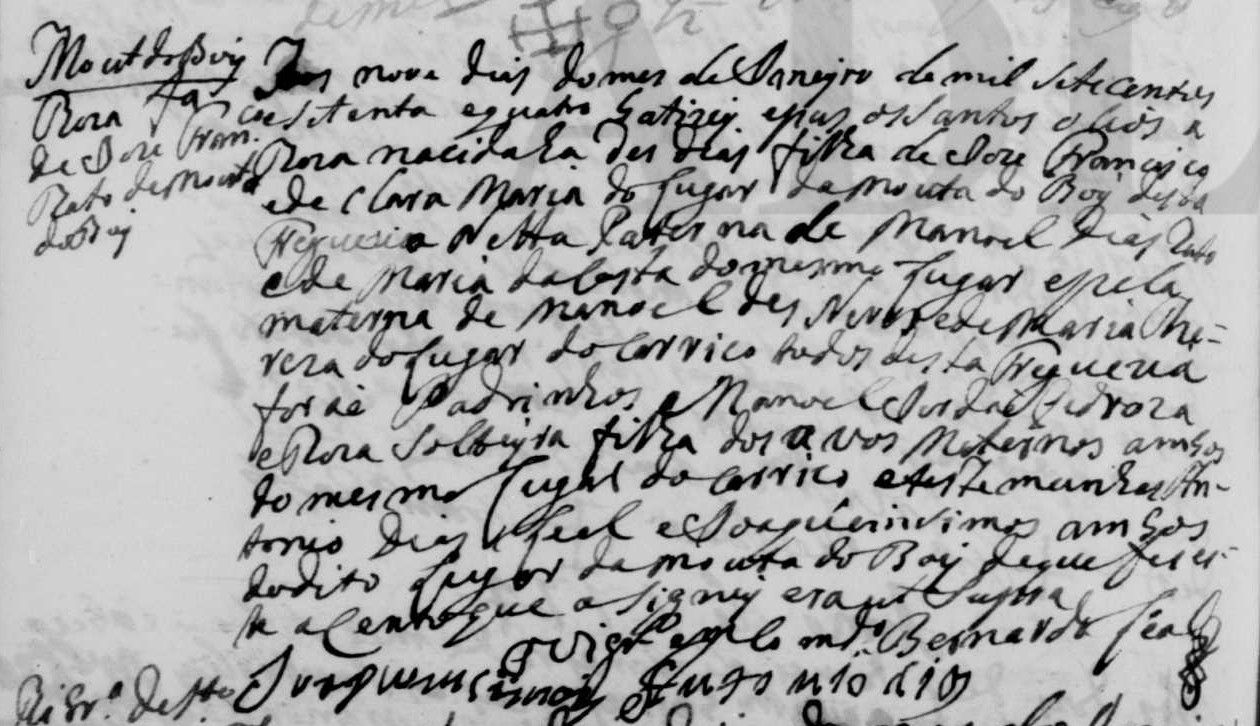 Mout do Boy
Roza fa
de Joze Fran.
Rato de Mouta
do Boy
Aos nove dias do mes de Janeyro de mil sete centos
e setenta e quatro batizey e pus os santos olios a
Roza nacida ha des dias filha de Joze Francisco
e de Clara Maria do lugar da Mouta do Boy desta
Freguezia Netta Paterna de Manoel Dias Rato
e de Maria da Costa do mesmo lugar e pela
materna de Manoel das Neves e de Maria
do lugar do Carrico todos desta Freguezia
forão Padrinhos Manoel Jordão Pedroza
e Roza Solteyra filha dos avos Maternos ambos
do mesmo lugar do Carrico e testemunhas An-
tonio Dias Leal e Joaquim Simois ambos
do dito lugar da Mouta do Boy de que fis es-
te asento que asigney era ut supra
O Vigr.o Bernardo Leal
Antonio Dias